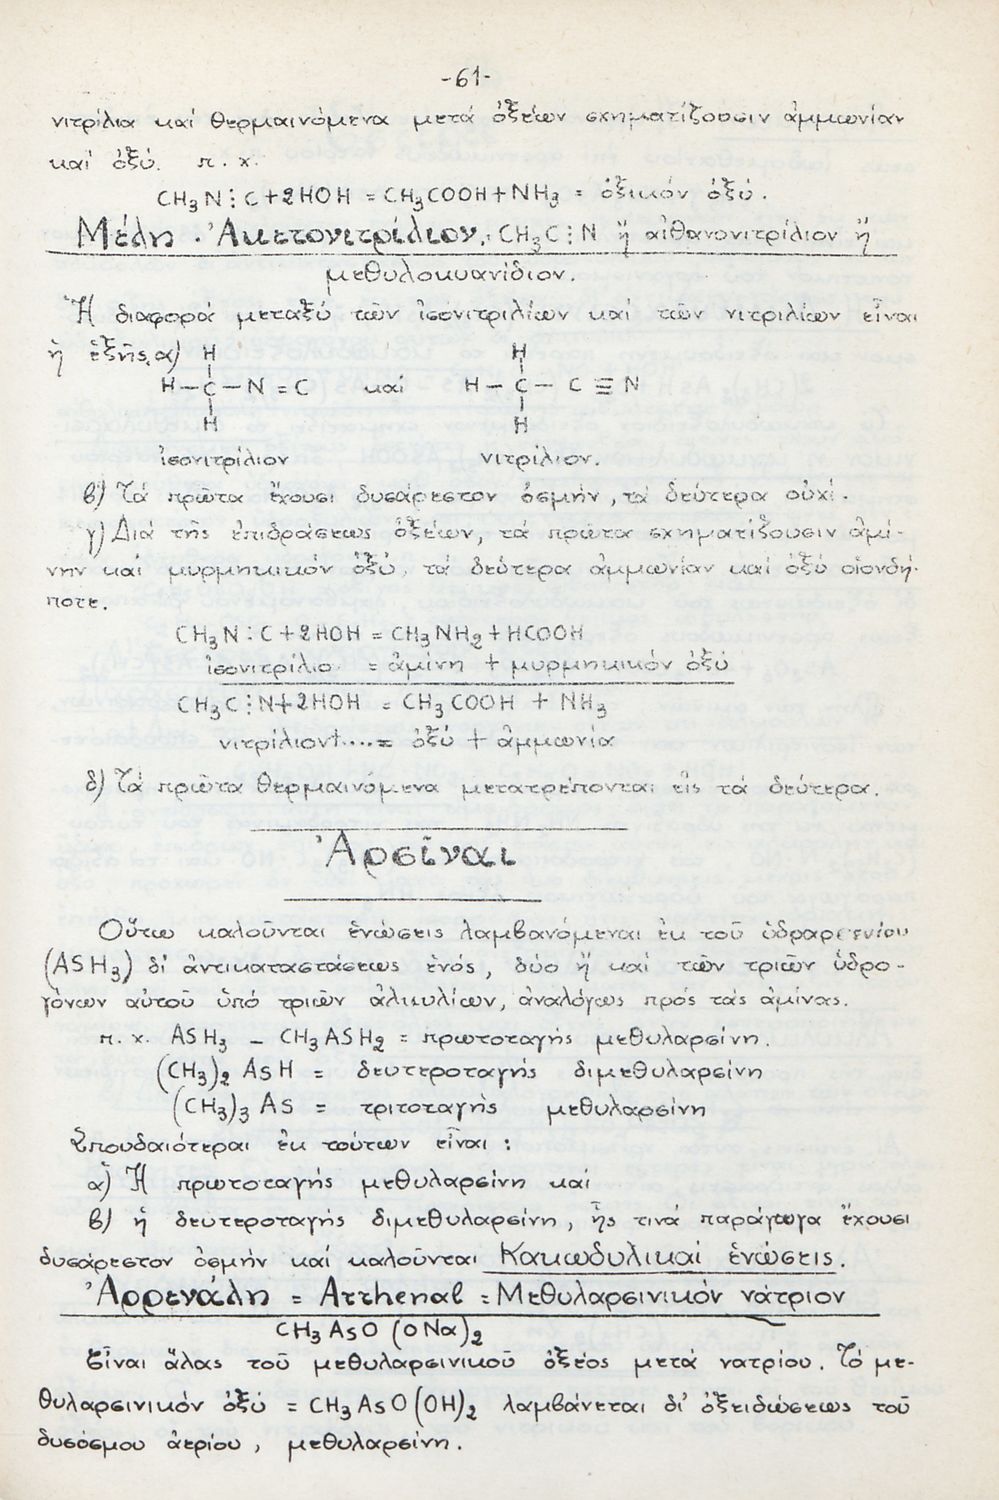 -61-
νιτρίλια καί θερμαινόμενα μετά ὀξέων σχηματίζουσιν ἀμμωνίαν
καί ὀξύ. π.χ.
CH₃N⋮C+2HOH = CH₃COOH+NH₃ = ὀξικόν ὀξύ.
Μέλη. Ἀκετονιτρίλιον, CH₃C⋮N ἤ αἰθανονιτρίλιον ἤ
μεθυλοκυανίδιον.
Ἡ διαφορά μεταξύ τῶν ἰσονιτριλίων καί τῶν νιτριλίων εἶναι
ἡ ἑξῆς. α)
H H
H–C–N=C καί H–C–C≡N
H H
ἰσονιτρίλιον νιτρίλιον.
β) Τά πρῶτα ἔχουσι δυσάρεστον ὀσμήν, τά δεύτερα οὐχί.
γ) Διά τῆς ἐπιδράσεως ὀξέων, τά πρῶτα σχηματίζουσιν ἀμί-
νην καί μυρμηκικόν ὀξύ, τά δεύτερα ἀμμωνίαν καί ὀξύ οἱονδή-
ποτε.
CH₃N⋮C+2HOH = CH₃NH₂+HCOOH
ἰσονιτρίλιο. = ἀμίνη + μυρμηκικόν ὀξύ
CH₃C⋮N+2HOH = CH₃COOH + NH₃
νιτρίλιον+....= ὀξύ + ἀμμωνία
δ) Τά πρῶτα θερμαινόμενα μετατρέπονται εἰς τά δεύτερα.
Ἀρσῖναι
Οὕτω καλοῦνται ἑνώσεις λαμβανόμεναι ἐκ τοῦ ὑδραρσενίου
(ASH₃) δι' ἀντικαταστάσεως ἑνός, δύο ἤ καί τῶν τριῶν ὑδρο-
γόνων αὐτοῦ ὑπό τριῶν ἀλκυλίων, ἀναλόγως πρός τάς ἀμίνας.
π.χ. ASH₃ – CH₃ASH₂ = πρωτοταγής μεθυλαρσίνη.
(CH₃)₂ ASH = δευτεροταγής διμεθυλαρσίνη
(CH₃)₃ AS = τριτοταγής μεθυλαρσίνη
Σπουδαιότεραι ἐκ τούτων εἶναι :
α) Ἡ πρωτοταγής μεθυλαρσίνη καί
β) ἡ δευτεροταγής διμεθυλαρσίνη, ἧς τινά παράγωγα ἔχουσι
δυσάρεστον ὀσμήν καί καλοῦνται Κακωδυλικαί ἑνώσεις.
Ἀρρενάλη = Arrhenal = Μεθυλαρσινικόν νάτριον
CH₃AsO (ONa)₂
Εἶναι ἅλας τοῦ μεθυλαρσινικοῦ ὀξέος μετά νατρίου. Τό με-
θυλαρσινικόν ὀξύ = CH₃AsO(OH)₂ λαμβάνεται δι' ὀξειδώσεως τοῦ
δυσόσμου ἀερίου, μεθυλαρσίνη.